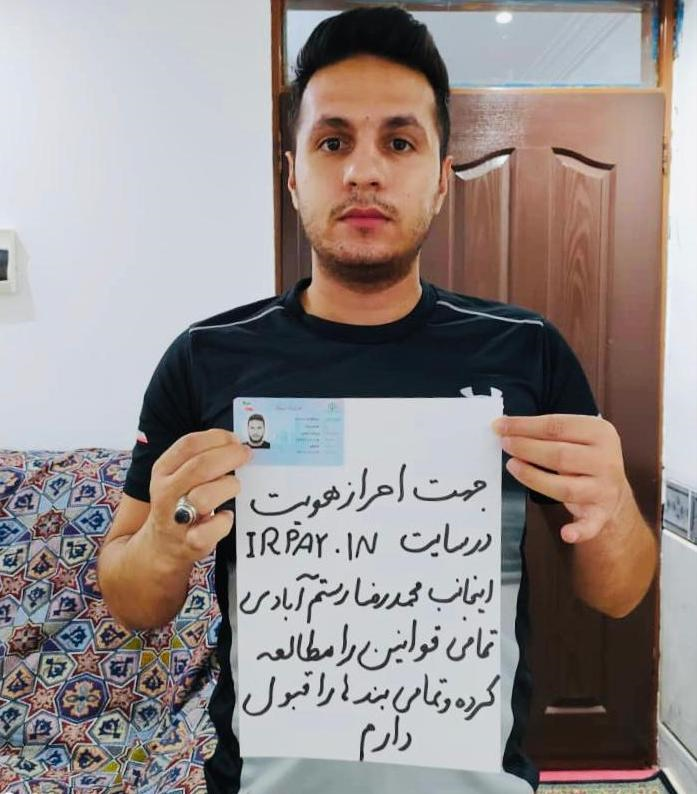 جهت احراز هویت
در سایت IRPAY.IN
اینجانب محمدرضا رستم آبادی
تمامی قوانین را مطالعه
کرده و تمامی بند ها را قبول
دارم